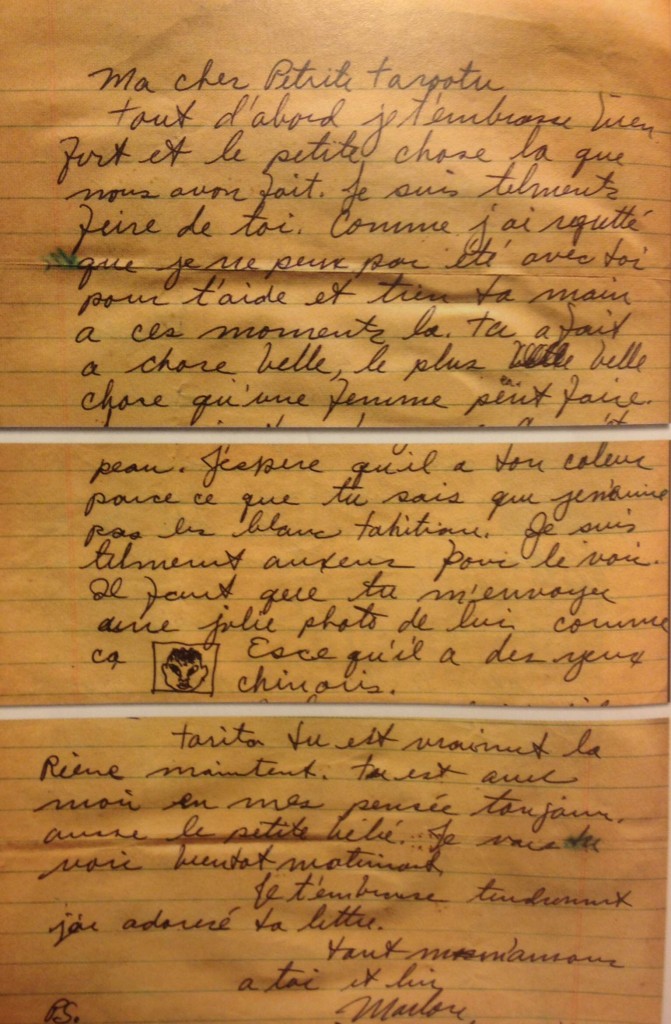 Ma cher Petrite tarootu
tout d'abord je t'embrasse bien
fort et le petite chose la que
nous avon fait. Je suis telments
feire de toi. Comme j'ai regretté
que je ne peux par été avec toi
pour t'aide et trien ta main
a ces moments la. Tu a fait
a chose belle, le plus belle
chose qu'une femme peut faire.
peau. J'espere qu'il a ton coleur
parce ce que tu sais que je n'aime
pas les blanc tahitian. Je suis
telment anxeux pour le voir.
Il faut que tu m'envoyer
une jolie photo de lui comme
ca Esce qu'il a des yeux
chinois.
tarita tu est vraiment la
Riene maintent. tu est avec
moi en mes pensée toujour.
ausse le petite bébé. Je vais tu
voir bientot
Je t'embrasse tendrement
j'ai adoresé ta lettre.
tout
a toi et lui
Marlon,
P.S.